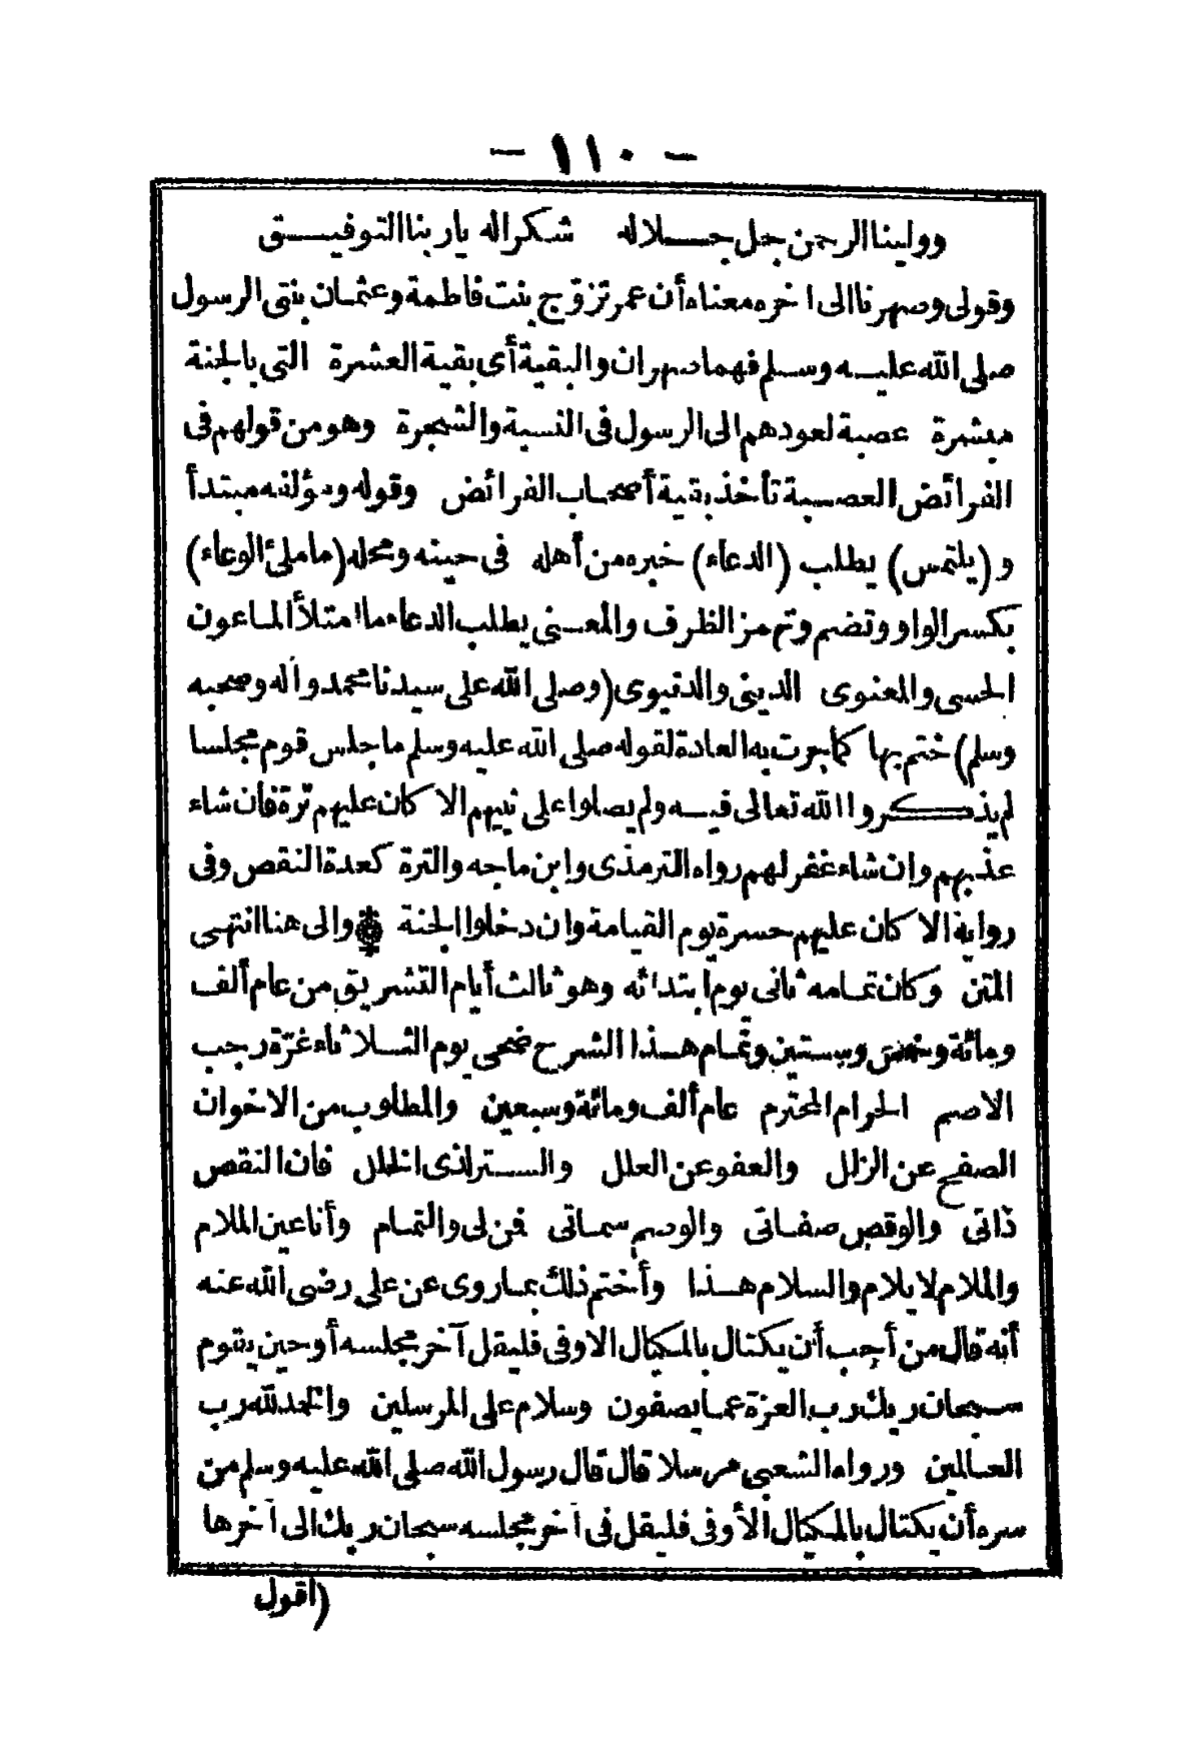 - ١١٠ -
وولينا الرحمن جل جلاله شكرا له يا ربنا التوفيق
وقولى وصهرنا الى اخره معناه أن عمر تزوّج بنت فاطمة وعثمان بنتى الرسول
صلى الله عليه وسلم فهما صهران والبقية أى بقية العشرة التى بالجنة
مبشرة عصبة لعودهم الى الرسول فى النسبة والشجرة وهو من قولهم فى
الفرائض العصبة تأخذ بقية أصحاب الفرائض وقوله ومؤلفه مبتدأ
و (يلتمس) يطلب (الدعاء) خبره من أهله فى حينه ومحله (ما ملئ الوعاء)
بكسر الواو وتضم وتهمز الظرف والمعنى يطلب الدعاء ما امتلأ الماعون
الحسى والمعنوى الدينى والدنيوى (وصلى الله على سيدنا محمد وآله وصحبه
وسلم) ختم بها كما جرت به العادة لقوله صلى الله عليه وسلم ما جلس قوم مجلسا
لم يذكروا الله تعالى فيه ولم يصلوا على نبيهم الا كان عليهم ترّة فان شاء
عذبهم وان شاء غفر لهم رواه الترمذى وابن ماجه والترة كعدة النقص وفى
رواية الا كان عليهم حسرة يوم القيامة وان دخلوا الجنة * والى هنا انتهى
المتن وكان تمامه ثانى يوم ابتدائه وهو ثالث أيام التشريق من عام ألف
ومائة وخمس وستين وتمام هذا الشرح ضحى يوم الثلاثاء غرّة رجب
الاصم الحرام المحترم عام ألف ومائة وسبعين والمطلوب من الاخوان
الصفح عن الزلل والعفو عن العلل والستر لذى الخلل فان النقص
ذاتى والوقص صفاتى والوصم سماتى فمن لى والتمام وأنا عين الملام
والملام لا يلام والسلام هذا وأختم ذلك بما روى عن على رضى الله عنه
أنه قال من أحب أن يكتال بالمكيال الاوفى فليقل آخر مجلسه أو حين يقوم
سبحان ربك رب العزة عما يصفون وسلام على المرسلين والحمد لله رب
العالمين ورواه الشعبى مرسلا قال قال رسول الله صلى الله عليه وسلم من
سره أن يكتال بالمكيال الأوفى فليقل فى آخر مجلسه سبحان ربك الى آخرها
(اقول